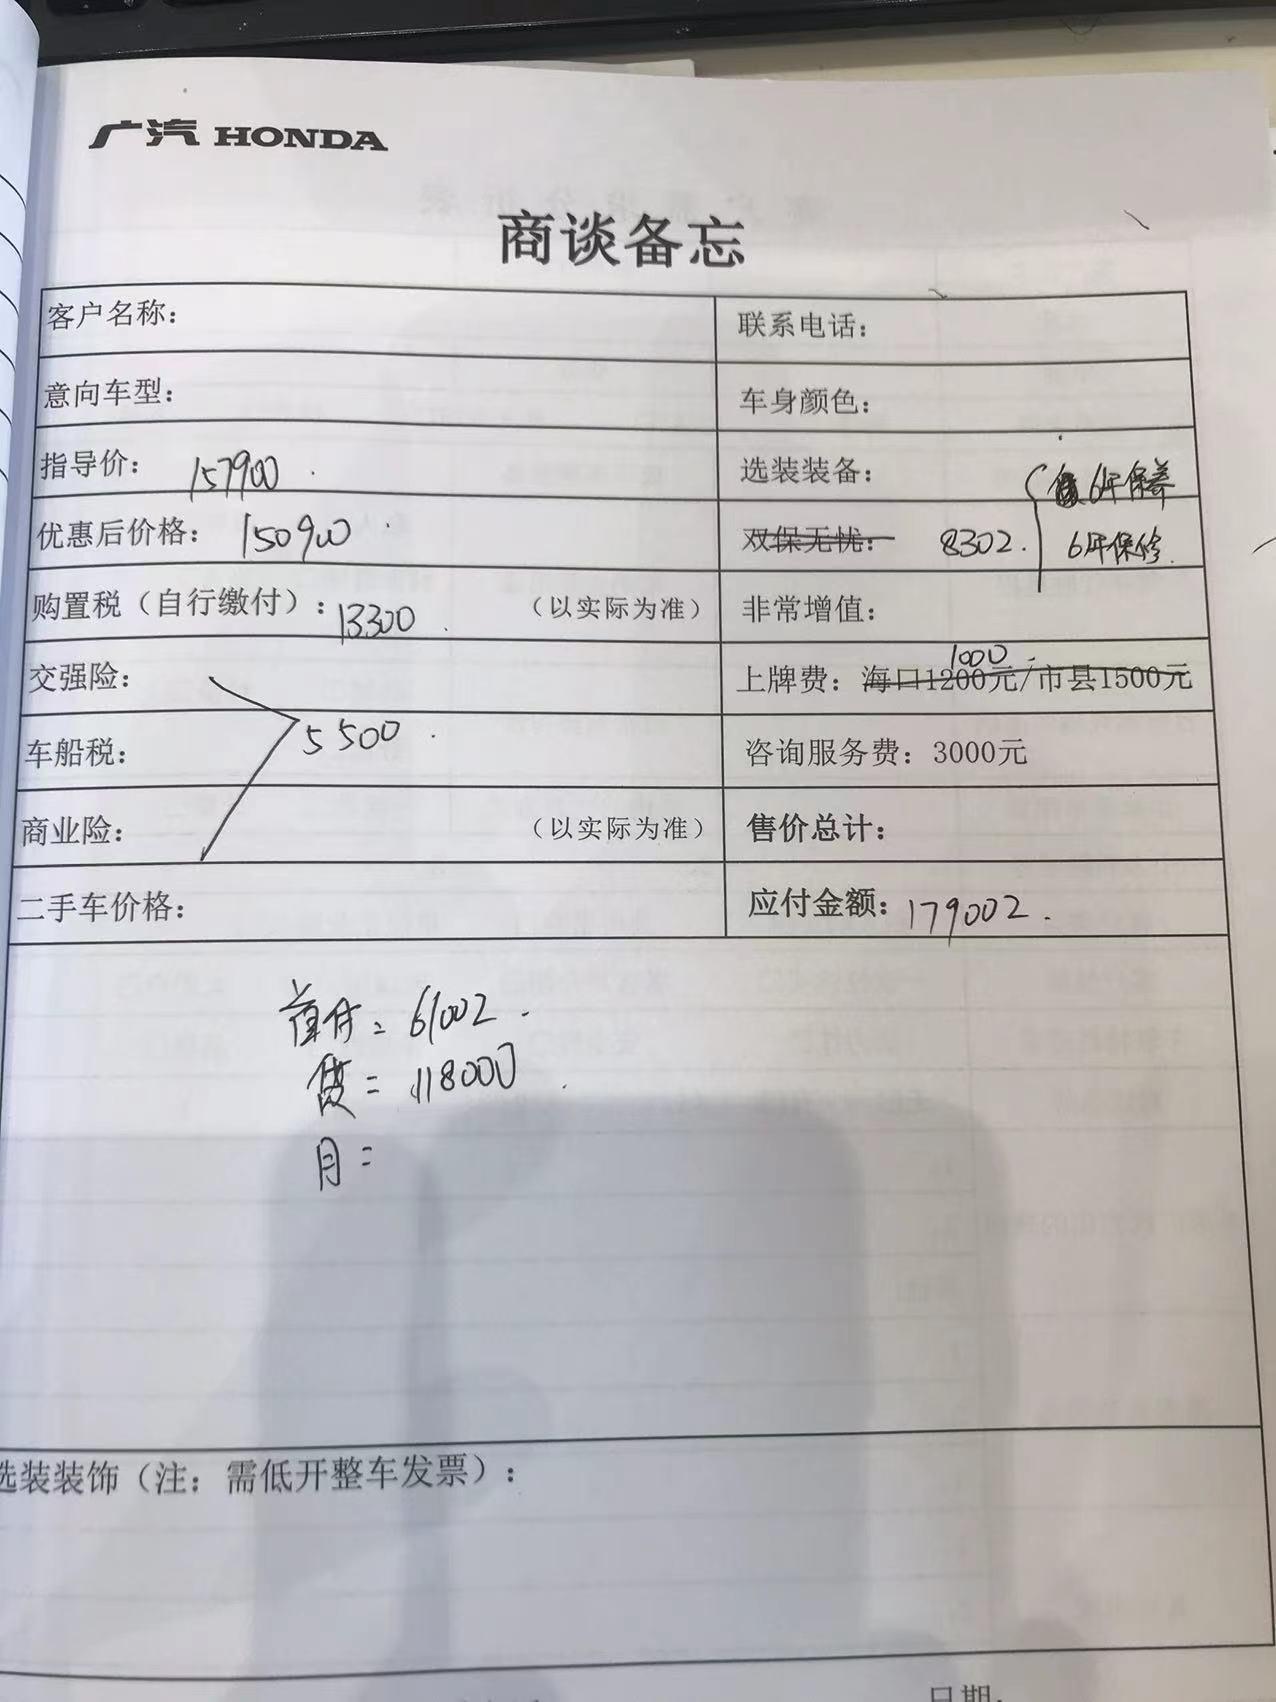 广汽 HONDA
商谈备忘
客户名称：
联系电话：
意向车型：
车身颜色：
指导价： 157900
选装装备：
6年保养
优惠后价格： 150900
双保无忧： 8302. 6年保修
购置税（自行缴付）： 13300 （以实际为准）
非常增值：
交强险：
1000
上牌费：海口1200元/市县1500元
车船税： 5500
咨询服务费：3000元
商业险： （以实际为准）
售价总计：
二手车价格：
应付金额：179002.
首付= 61002.
贷= 118000
月=
选装装饰（注：需低开整车发票）：
日期：